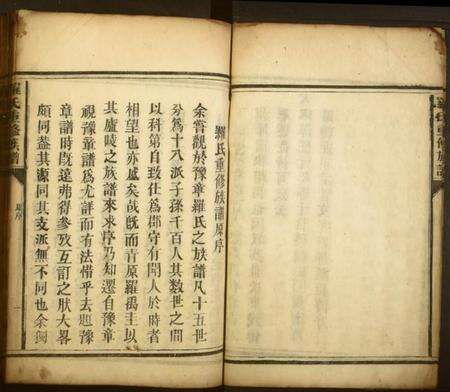 羅氏重修族譜原序
余嘗觀於豫章羅氏之族譜凡十五世
分為十八派子孫千百人其數世之間
以科第自致仕為郡守有聞人於時者
相望也亦盛矣哉既而青原羅禹圭以
其廬陵之族譜來求序乃知遷自豫章
視豫章譜為尤詳而有法惜乎去題豫
章譜時既遠弗得參攷互訂之肰大畧
頗同蓋其源同其支派無不同也余獨
羅氏重修族譜
原序
羅氏重修族譜